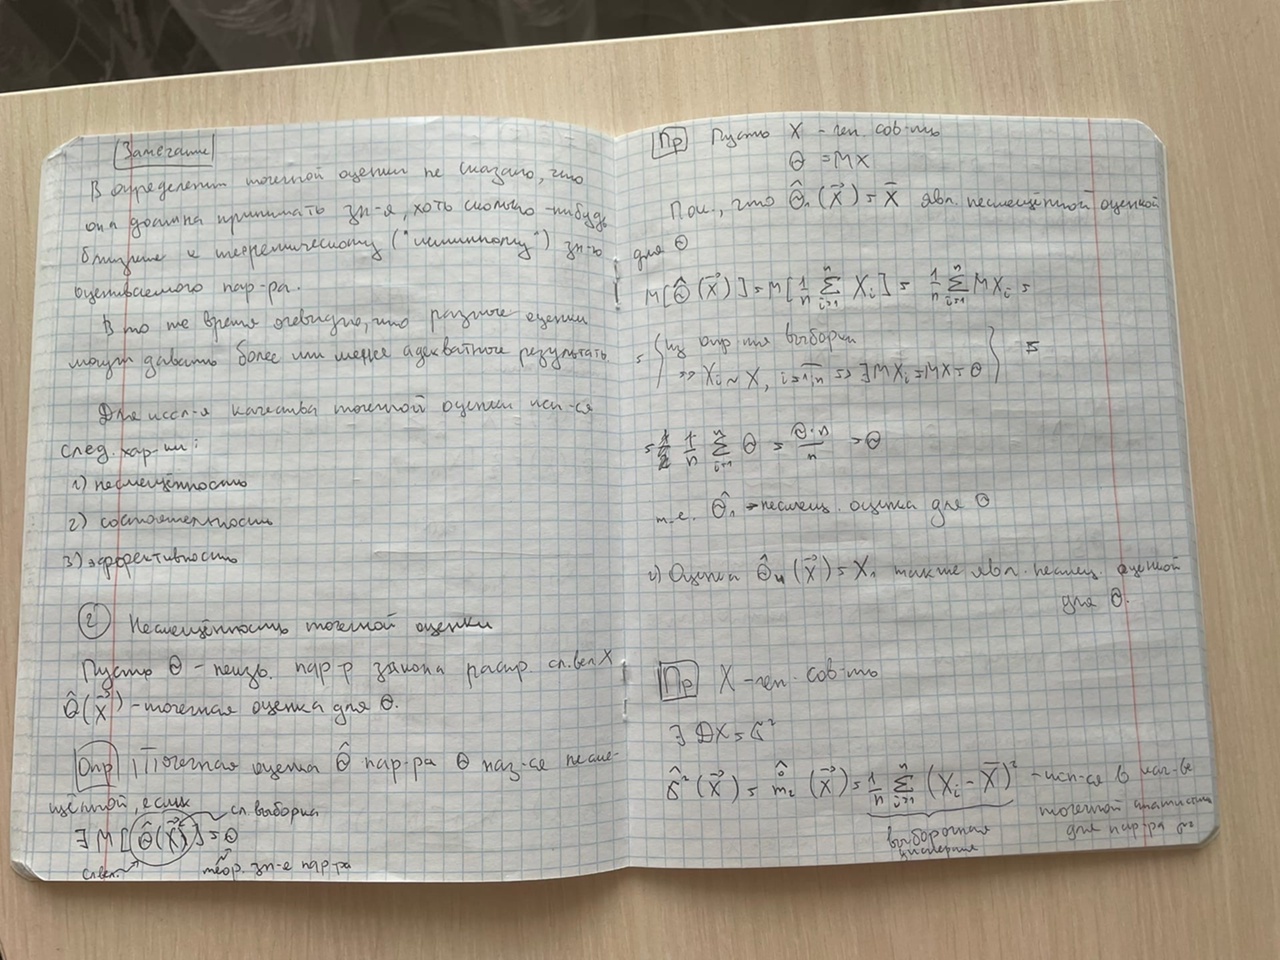 Замечание
В определении точечной оценки не сказано, что
она должна принимать зн-я, хоть сколько-нибудь
близкие к теоретическому ("истинному") зн-ю
оцениваемого пар-ра.
В то же время очевидно, что разные оценки
могут давать более или менее адекватные результаты
Для иссл-я качества точечной оценки исп-ся
след. хар-ки:
1) несмещённость
2) состоятельность
3) эффективность
② Несмещённость точечной оценки
Пусть θ - неизв. пар-р закона распр. сл. вел X
θ̂(X⃗) - точечная оценка для θ.
Опр Точечная оценка θ̂ пар-ра θ наз-ся несме-
щённой, если
∃ M[θ̂(X⃗)] = θ
сл. выборка
сл. вел.
теор. зн-е пар-ра
Пр Пусть X - ген. сов-ть
θ = MX
Пок., что θ̂₁(X⃗) = X̄ явл. несмещённой оценкой
для θ
M[θ̂(X⃗)] = M[1/n ∑ᵢ₌₁ⁿ Xᵢ] = 1/n ∑ᵢ₌₁ⁿ MXᵢ =
= { из опр-ия выборки
=> Xᵢ ~ X, i=1;n => ∃ MXᵢ = MX = θ } =
= 1/n ∑ᵢ₌₁ⁿ θ = θ·n/n = θ
т.е. θ̂₁ - несмещ. оценка для θ
2) Оценка θ̂₄(X⃗) = X₁ также явл. несмещ. оценкой
для θ.
Пр X - ген. сов-ть
∃ DX = σ²
σ̂²(X⃗) = m̂₂(X⃗) = 1/n ∑ᵢ₌₁ⁿ (Xᵢ - X̄)² - исп-ся в кач-ве
точечной
для пар-ра σ²
выборочная
дисперсия